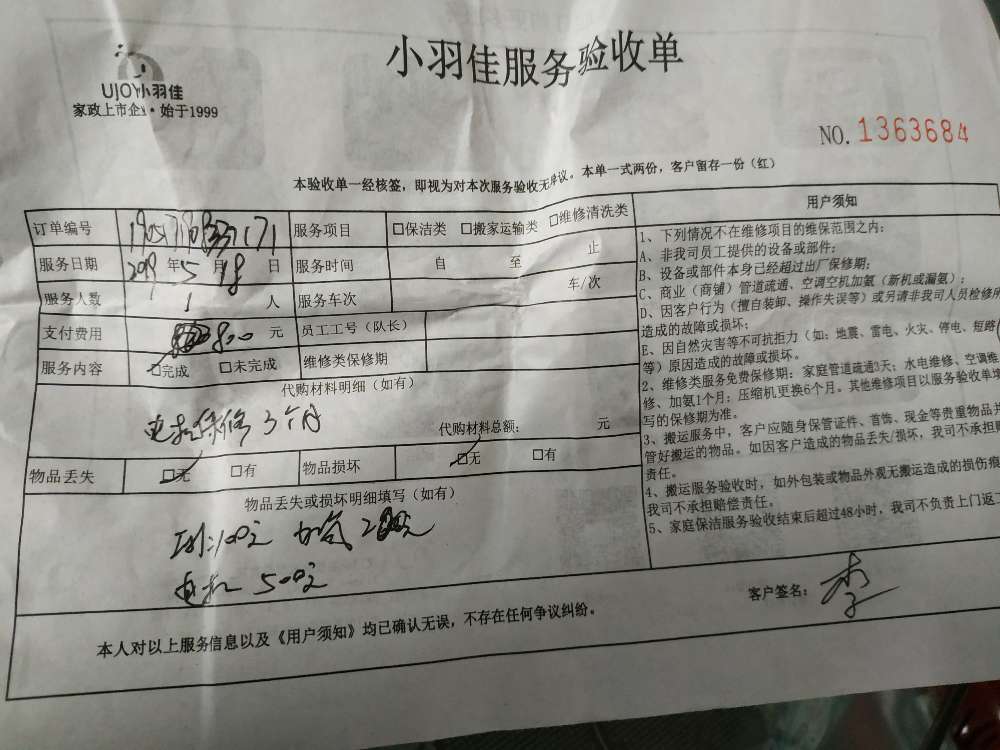 UJOY小羽佳
家政上市企业·始于1999
小羽佳服务验收单
NO. 1363684
本验收单一经核签，即视为对本次服务验收无异议。本单一式两份，客户留存一份（红）
订单编号
服务项目 □保洁类 □搬家运输类 □维修清洗类
服务日期 2019 年 5 月 18 日
服务时间 自 至 止
服务人数 1 人
服务车次 车/次
支付费用 800 元
员工工号（队长）
服务内容 □完成 □未完成
维修类保修期
代购材料明细（如有）
电机保修3个月
代购材料总额： 元
物品丢失 □无 □有
物品损坏 □无 □有
物品丢失或损坏明细填写（如有）
100元 加氨
电机 500元
本人对以上服务信息以及《用户须知》均已确认无误，不存在任何争议纠纷。
用户须知
1、下列情况不在维修项目的维保范围之内：
A、非我司员工提供的设备或部件；
B、设备或部件本身已经超过出厂保修期；
C、商业（商铺）管道疏通、空调空机加氨（新机或漏氨）；
D、因客户行为（擅自装卸、操作失误等）或另请非我司人员检修所
造成的故障或损坏；
E、因自然灾害等不可抗拒力（如：地震、雷电、火灾、停电、短路
等）原因造成的故障或损坏。
2、维修类服务免费保修期：家庭管道疏通3天；水电维修、空调维
修、加氨1个月；压缩机更换6个月。其他维修项目以服务验收单填
写的保修期为准。
3、搬运服务中，客户应随身保管证件、首饰、现金等贵重物品并
管好搬运的物品。如因客户造成的物品丢失/损坏，我司不承担赔
责任。
4、搬运服务验收时，如外包装或物品外观无搬运造成的损伤痕
我司不承担赔偿责任。
5、家庭保洁服务验收结束后超过48小时，我司不负责上门返工
客户签名： 李